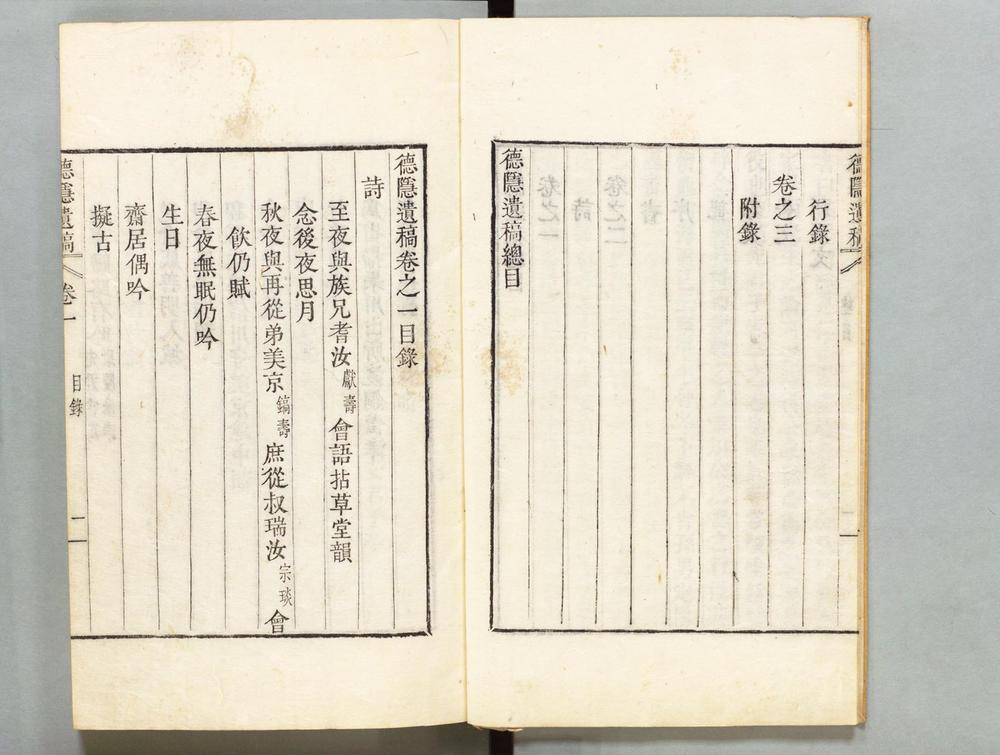 德隱遺稿
行錄
卷之三
附錄
德隱遺稿總目
德隱遺稿卷之一目錄
詩
至夜與族兄耆汝獻壽會語拈草堂韻
念後夜思月
秋夜與再從弟美京鎬壽庶從叔瑞汝宗琰會
飮仍賦
春夜無眠仍吟
生日
齋居偶吟
擬古
德隱遺稿 卷一 目錄 二